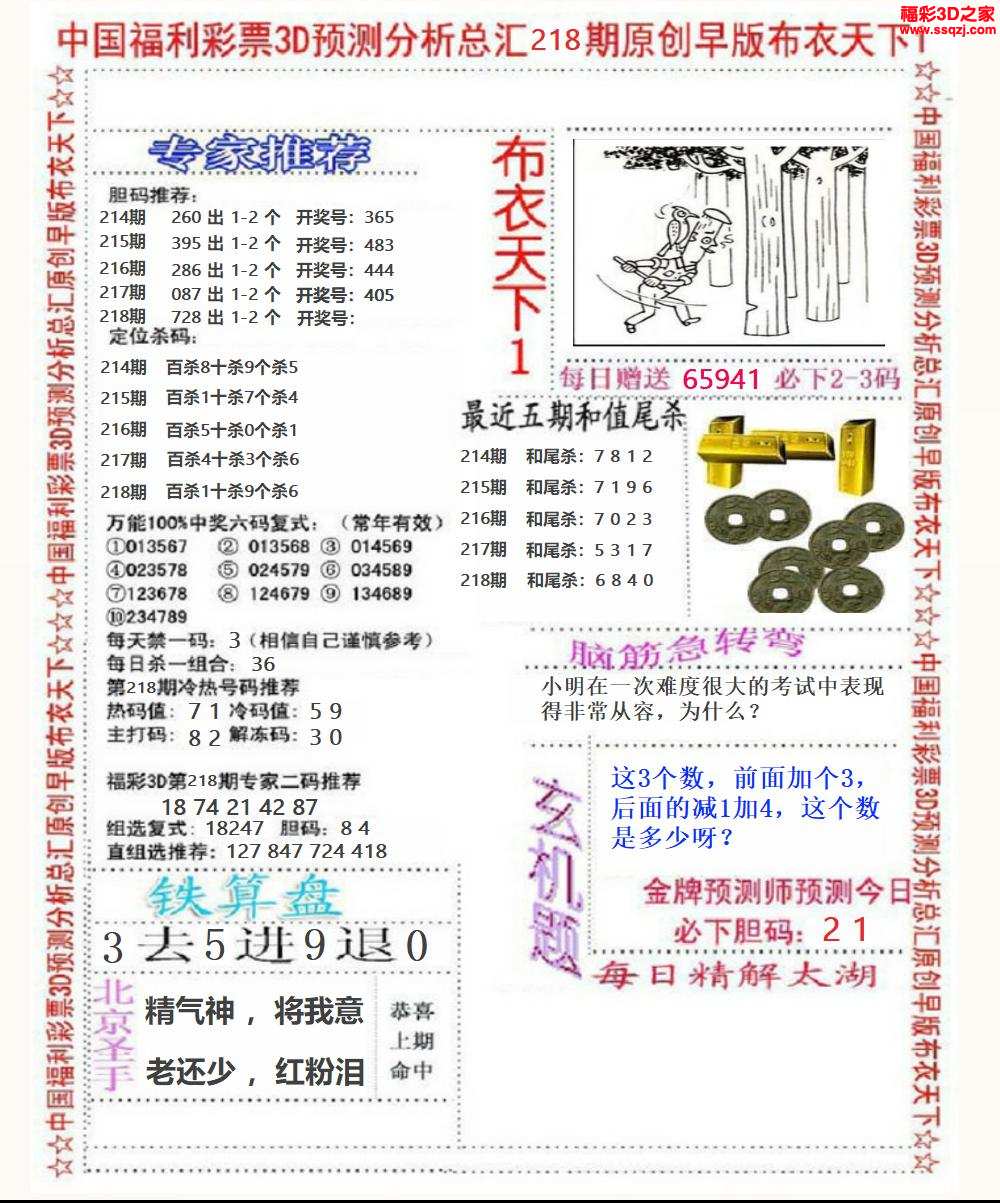 福彩3D之家
www.ssqzj.com
中国福利彩票3D预测分析总汇218期原创早版布衣天下1
☆☆中国福利彩票3D预测分析总汇原创早版布衣天下☆☆☆中国福利彩票3D预测分析总汇原创早版布衣天下☆☆
专家推荐
胆码推荐:
214期 260 出 1-2 个 开奖号: 365
215期 395 出 1-2 个 开奖号: 483
216期 286 出 1-2 个 开奖号: 444
217期 087 出 1-2 个 开奖号: 405
218期 728 出 1-2 个 开奖号:
定位杀码:
214期 百杀8十杀9个杀5
215期 百杀1十杀7个杀4
216期 百杀5十杀0个杀1
217期 百杀4十杀3个杀6
218期 百杀1十杀9个杀6
万能100%中奖六码复式: (常年有效)
①013567 ② 013568 ③ 014569
④023578 ⑤ 024579 ⑥ 034589
⑦123678 ⑧ 124679 ⑨ 134689
⑩234789
每天禁一码: 3(相信自己谨慎参考)
每日杀一组合: 36
第218期冷热号码推荐
热码值: 7 1 冷码值: 5 9
主打码: 8 2 解冻码: 3 0
福彩3D第218期专家二码推荐
18 74 21 42 87
组选复式: 18247 胆码: 8 4
直组选推荐: 127 847 724 418
铁算盘
3去5进9退0
北京圣手
精气神，将我意
老还少，红粉泪
恭喜
上期
命中
布衣天下1
每日赠送 65941 必下2-3码
最近五期和值尾杀
214期 和尾杀: 7 8 1 2
215期 和尾杀: 7 1 9 6
216期 和尾杀: 7 0 2 3
217期 和尾杀: 5 3 1 7
218期 和尾杀: 6 8 4 0
脑筋急转弯
小明在一次难度很大的考试中表现
得非常从容，为什么?
玄机题
这3个数，前面加个3，
后面的减1加4，这个数
是多少呀?
金牌预测师预测今日
必下胆码: 2 1
每日精解太湖
☆☆中国福利彩票3D预测分析总汇原创早版布衣天下☆☆☆中国福利彩票3D预测分析总汇原创早版布衣天下☆☆